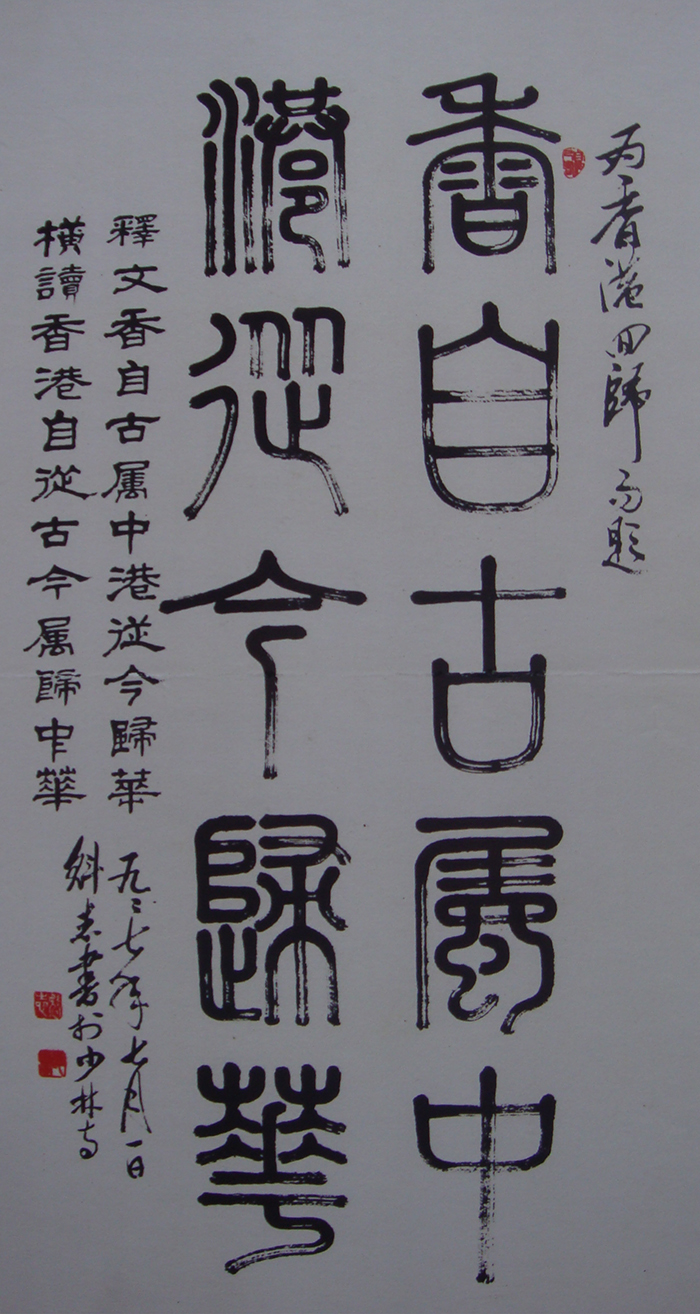 为香港回歸而题
香自古属中
港從今歸華
釋文香自古属中港從今歸華
横讀香港自從古今属歸中華
九九七年七月一日
魁志書於少林寺